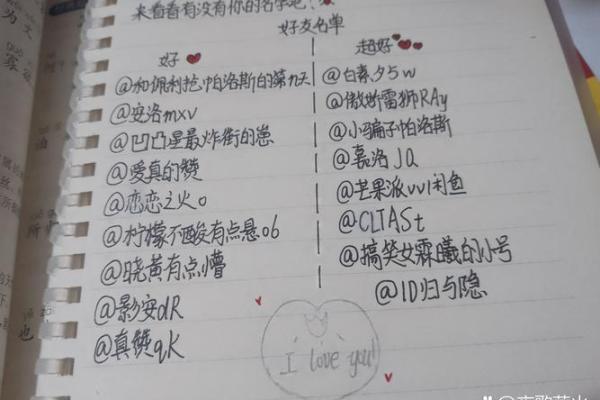 来看看有没有你的名字吧!
好友名单
好
@和佩利抢帕洛斯的第九天
@安洛mxv
@凹凸星最炸街的崽
@爱真的赞
@恋恋之火o
@柠檬不酸有点悬06
@晓黄有点懵
@影安dR
@真赞qK
超好
@白素夕5w
@傲娇雷狮RAy
@小骗子帕洛斯
@嘉洛JQ
@芒果派vv1闲鱼
@CLTASt
@搞笑女霖曦的小号
@ID归与隐
I love you!